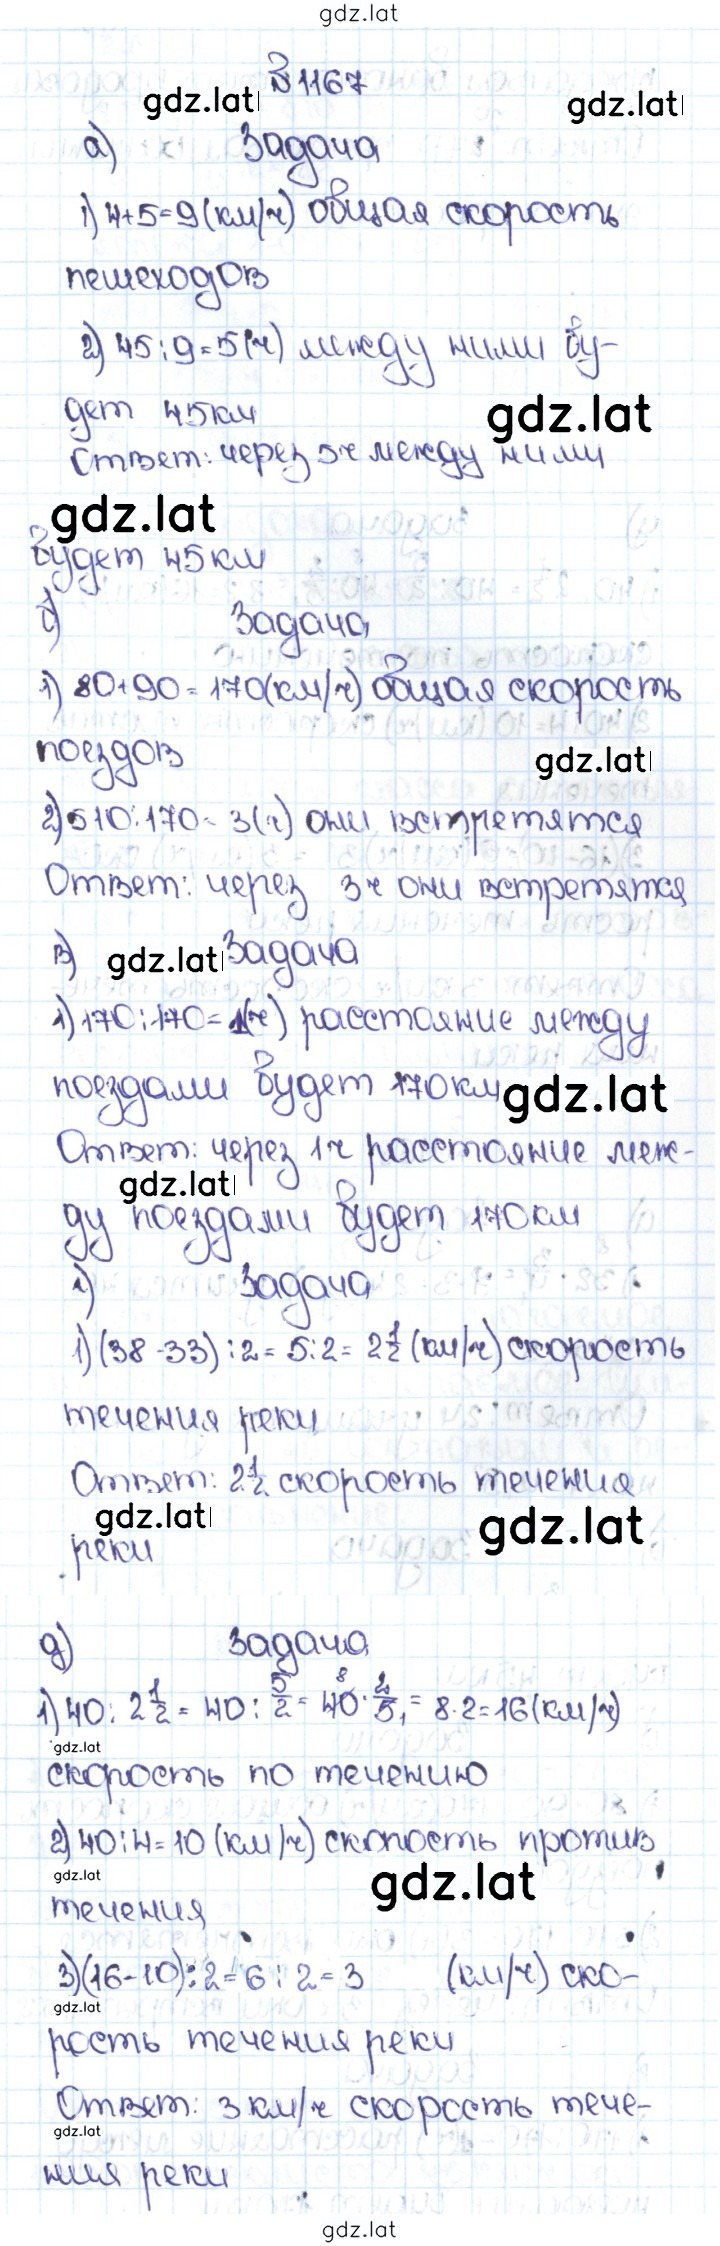 gdz.lat
№1167
gdz.lat gdz.lat
а) Задача
1) 4+5=9(км/ч) общая скорость
пешеходов
2) 45:9=5(ч) между ними бу-
дет 45км
gdz.lat
Ответ: через 5ч между ними
gdz.lat
будет 45км
б) Задача
1) 80+90=170(км/ч) общая скорость
поездов
gdz.lat
2) 510:170= 3(ч) они встретятся
Ответ: через 3ч они встретятся
в) Задача
gdz.lat
1) 170:170=1(ч) расстояние между
поездами будет 170км
gdz.lat
Ответ: через 1ч расстояние меж-
gdz.lat
ду поездами будет 170км
г) Задача
1) (38-33):2=5:2=2 1/2 (км/ч) скорость
течения реки
Ответ: 2 1/2 скорость течения
gdz.lat gdz.lat
реки
д) Задача
1) 40:2 1/2 = 40: 5/2 = 40 8 · 2/5 1 = 8·2=16(км/ч)
gdz.lat
скорость по течению
2) 40:4=10(км/ч) скопость против
gdz.lat gdz.lat
течения
3) (16-10):2=6:2=3 (км/ч) ско-
gdz.lat
рость течения реки
Ответ: 3км/ч скорость тече-
gdz.lat
ния реки
gdz.lat